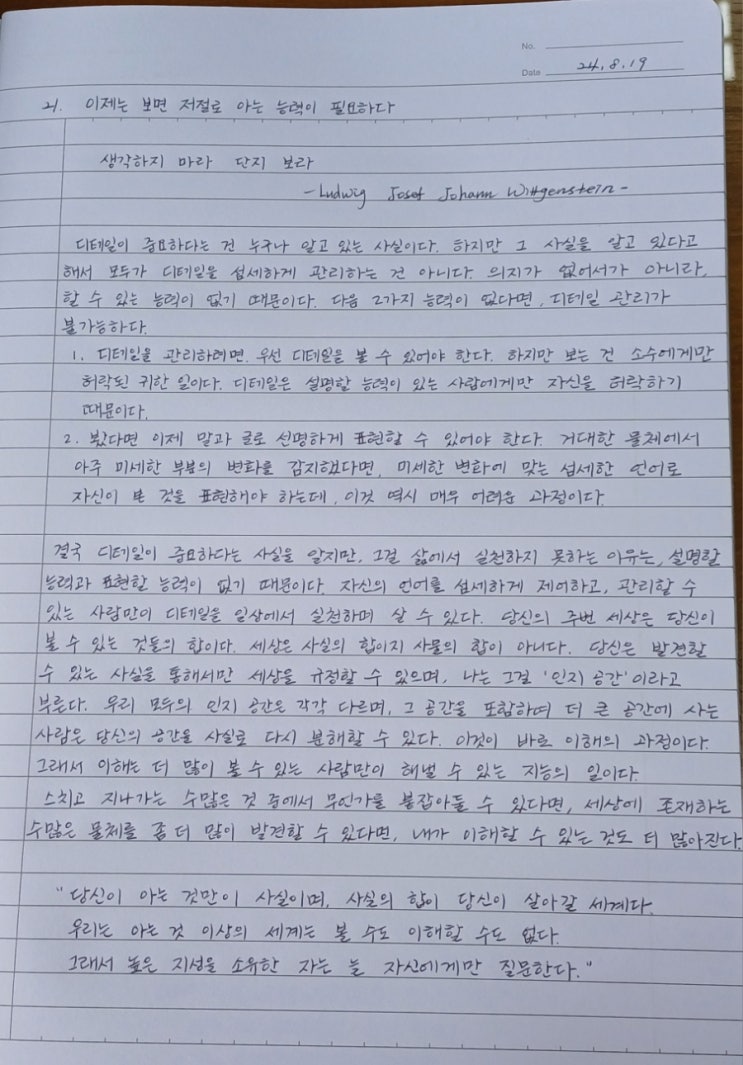 No.
Date 24. 8. 19
21. 이제는 보면 저절로 아는 능력이 필요하다
생각하지 마라 단지 보라
-Ludwig Josef Johann Wittgenstein-
디테일이 중요하다는 건 누구나 알고 있는 사실이다. 하지만 그 사실을 알고 있다고
해서 모두가 디테일을 섬세하게 관리하는 건 아니다. 의지가 없어서가 아니라,
할 수 있는 능력이 없기 때문이다. 다음 2가지 능력이 없다면, 디테일 관리가
불가능하다.
1. 디테일을 관리하려면, 우선 디테일을 볼 수 있어야 한다. 하지만 보는 건 소수에게만
허락된 귀한 일이다. 디테일은 설명할 능력이 있는 사람에게만 자신을 허락하기
때문이다.
2. 봤다면 이제 말과 글로 선명하게 표현할 수 있어야 한다. 거대한 물체에서
아주 미세한 부분의 변화를 감지했다면, 미세한 변화에 맞는 섬세한 언어로
자신이 본 것을 표현해야 하는데, 이것 역시 매우 어려운 과정이다.
결국 디테일이 중요하다는 사실을 알지만, 그걸 삶에서 실천하지 못하는 이유는, 설명할
능력과 표현할 능력이 없기 때문이다. 자신의 언어를 섬세하게 제어하고, 관리할 수
있는 사람만이 디테일을 일상에서 실천하며 살 수 있다. 당신의 주변 세상은 당신이
볼 수 있는 것들의 합이다. 세상은 사실의 합이지 사물의 합이 아니다. 당신은 발견할
수 있는 사실을 통해서만 세상을 규정할 수 있으며, 나는 그걸 '인지 공간'이라고
부른다. 우리 모두의 인지 공간은 각각 다르며, 그 공간을 포함하여 더 큰 공간에 사는
사람은 당신의 공간을 사실로 다시 분해할 수 있다. 이것이 바로 이해의 과정이다.
그래서 이해는 더 많이 볼 수 있는 사람만이 해낼 수 있는 지능의 일이다.
스치고 지나가는 수많은 것 중에서 무언가를 붙잡아둘 수 있다면, 세상에 존재하는
수많은 물체를 좀 더 많이 발견할 수 있다면, 내가 이해할 수 있는 것도 더 많아진다.
"당신이 아는 것만이 사실이며, 사실의 합이 당신이 살아갈 세계다.
우리는 아는 것 이상의 세계는 볼 수도 이해할 수도 없다.
그래서 높은 지성을 소유한 자는 늘 자신에게만 질문한다."